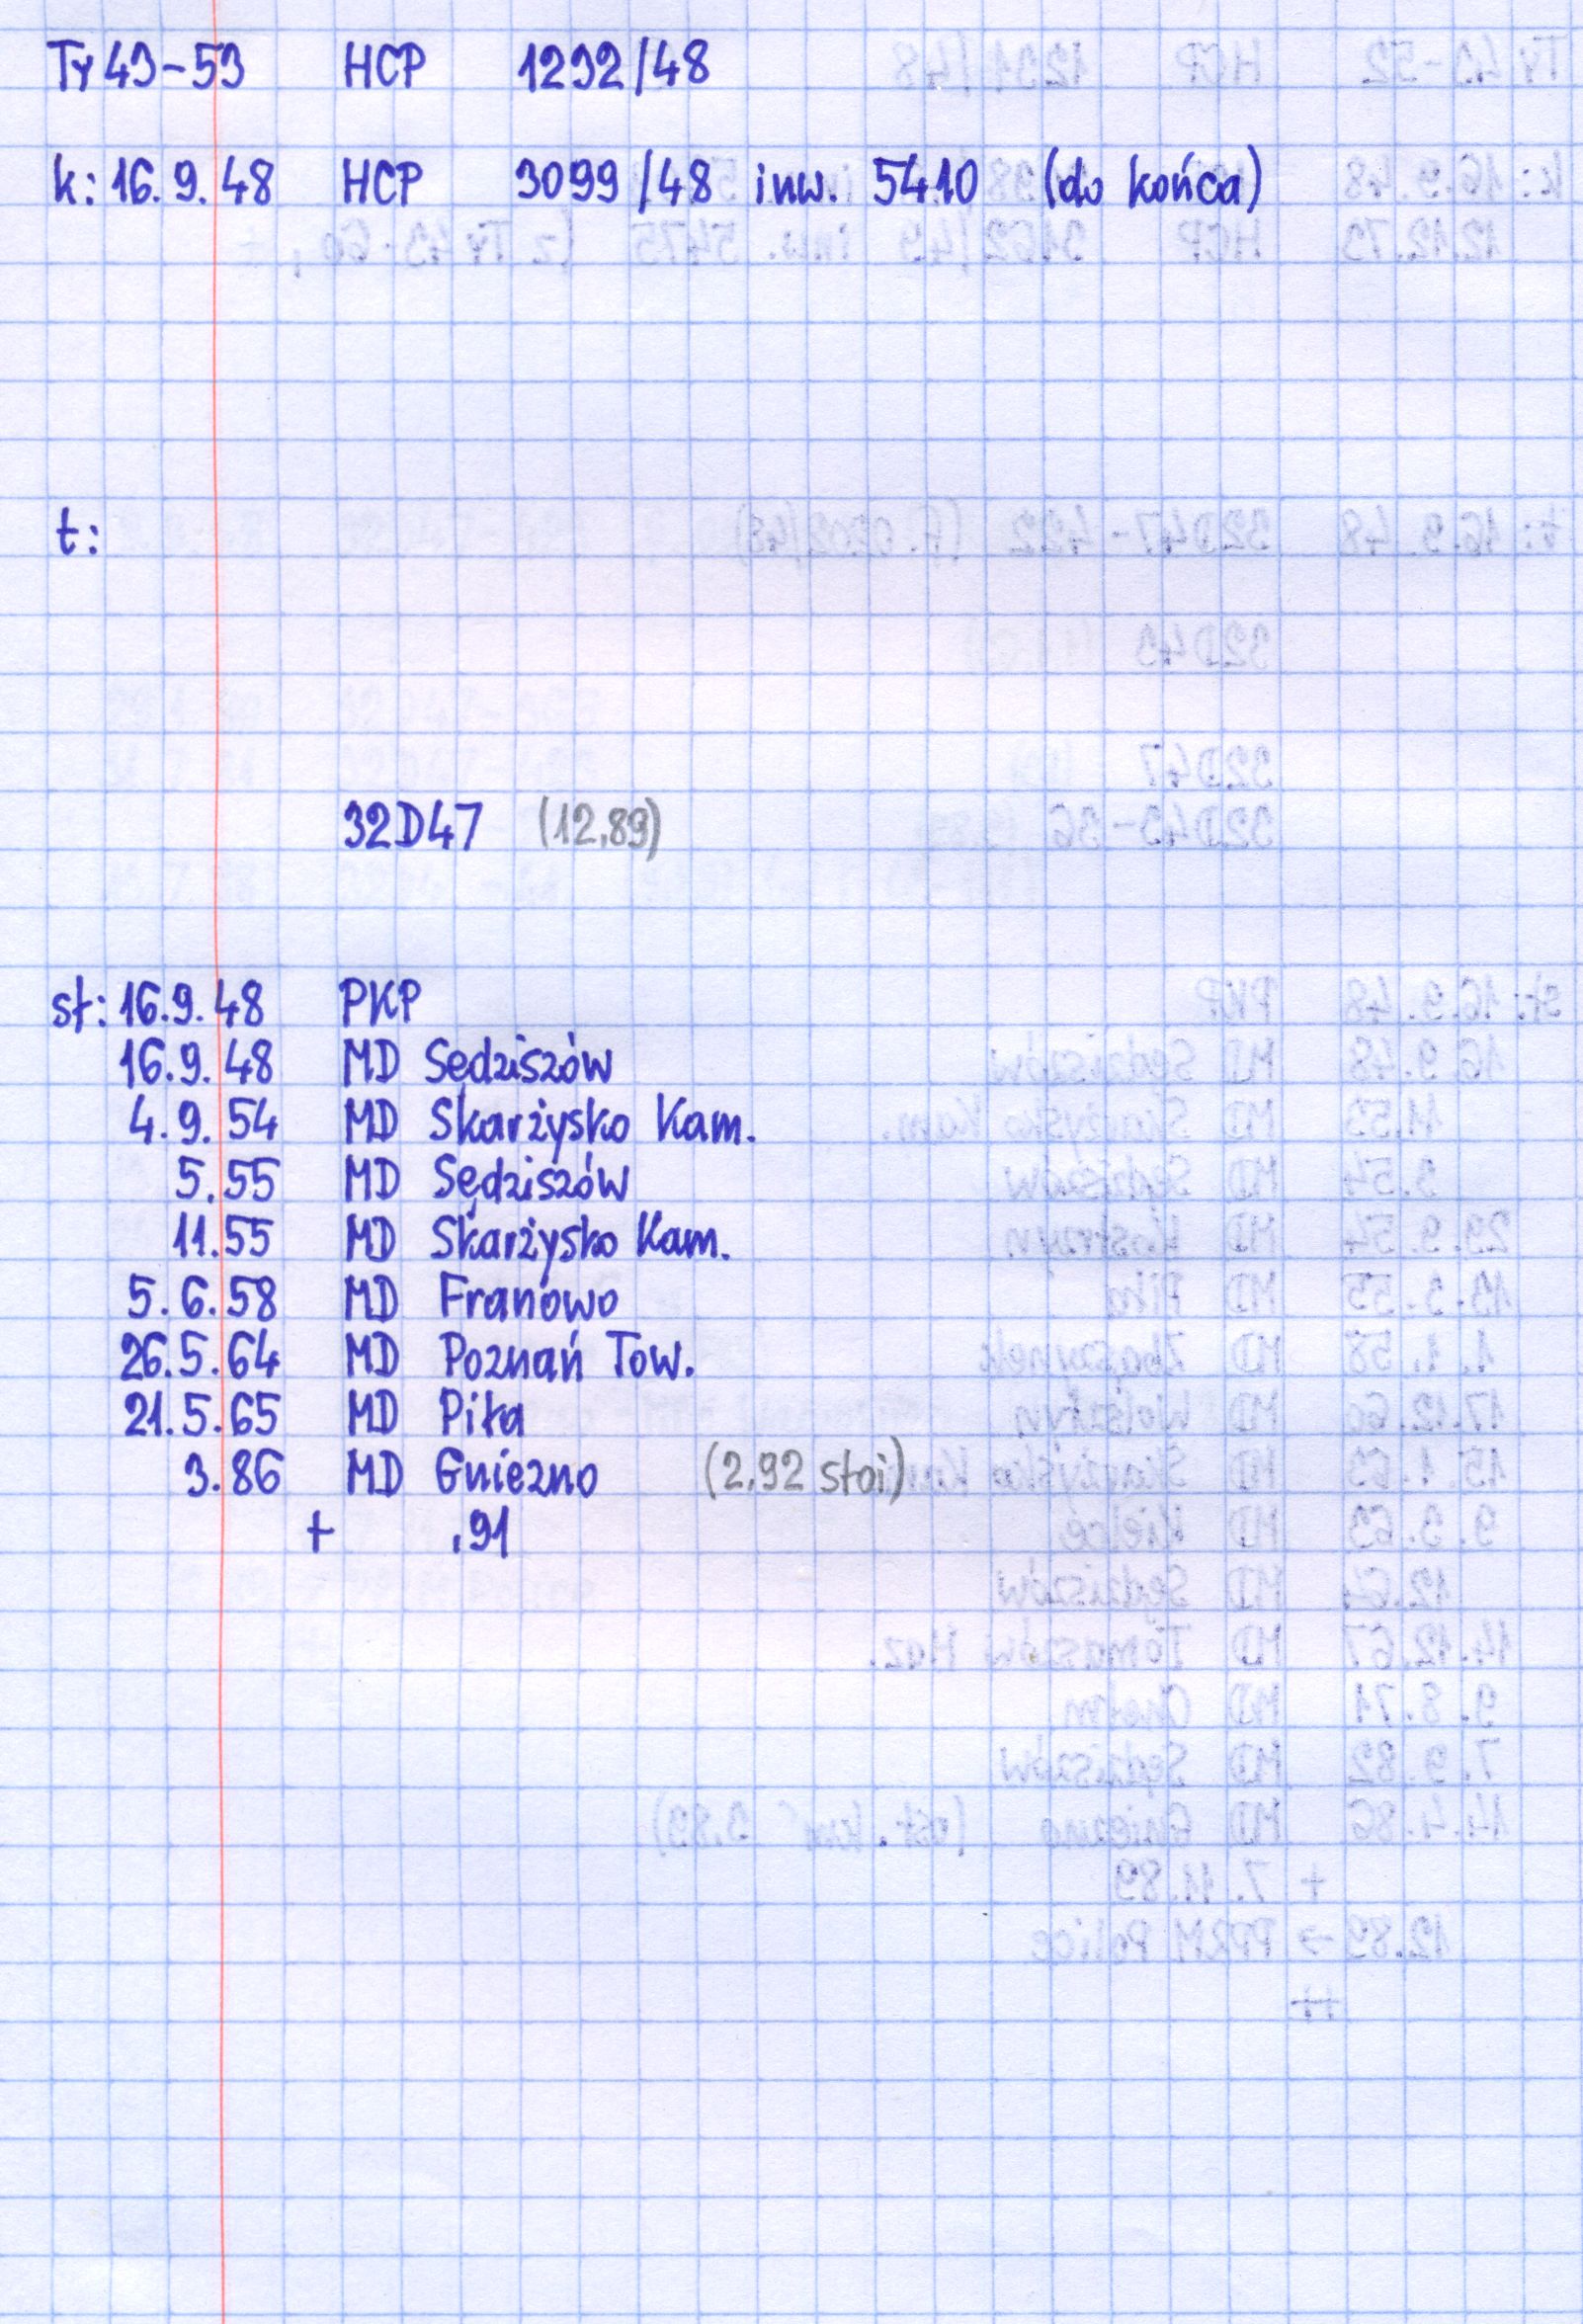 Ty43-53 HCP 1292/48
k: 16.9.48 HCP 3099/48 inw. 5410 (do końca)
t:
32D47 (12.89)
st: 16.9.48 PKP
16.9.48 MD Sędziszów
4.9.54 MD Skarżysko Kam.
5.55 MD Sędziszów
11.55 MD Skarżysko Kam.
5.6.58 MD Franowo
26.5.64 MD Poznań Tow.
21.5.65 MD Piła
3.86 MD Gniezno (2.92 stoi)
+ .91